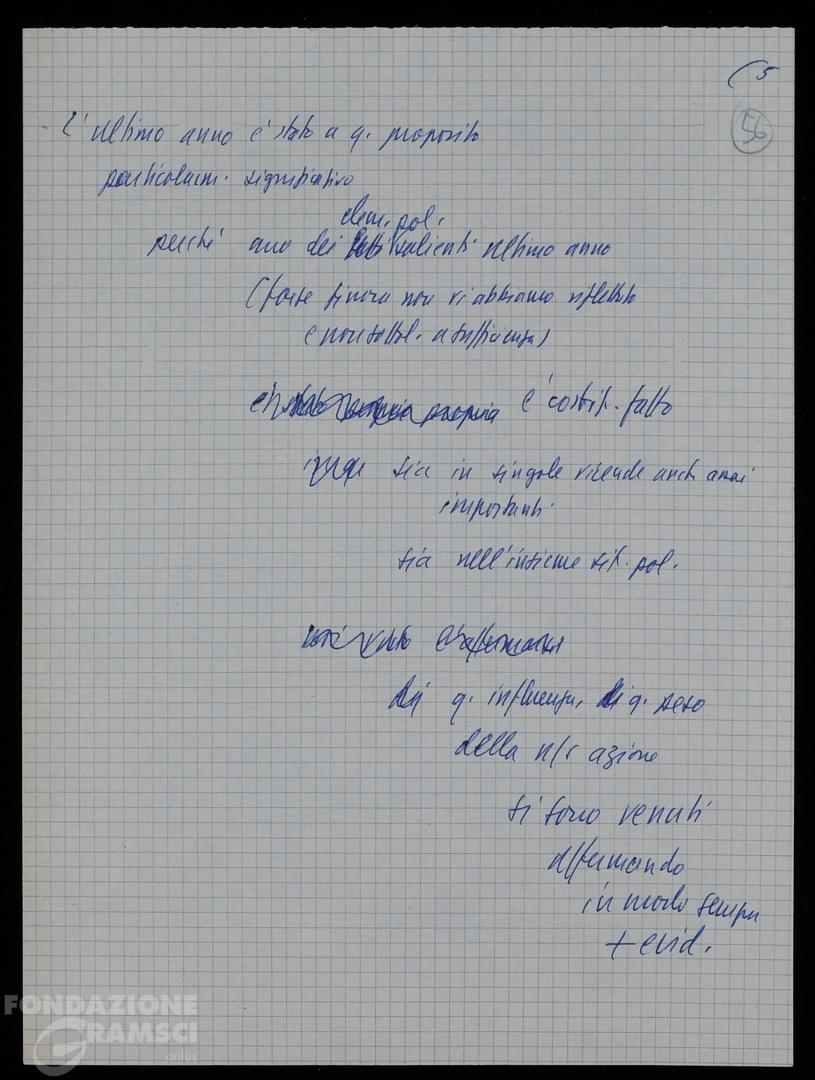 ( 5
56
L'ultimo anno è stato a q. proposito
particolarm. significativo
elem. pol.
perché uno dei salienti ultimo anno
(forse finora non vi abbiamo riflettuto
e non sottol. a sufficienza)
propria è costit. fatto
sia in singole vicende anch. assai
importanti
sia nell'insieme sit. pol.
q. influenza, di q. peso
della n/s azione
si sono venuti
affermando
in modo sempre
+ evid.
FONDAZIONE
GRAMSCI
onlus